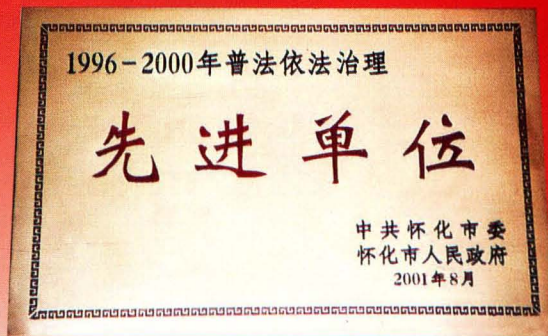 1996-2000年普法依法治理
先进单位
中共怀化市委
怀化市人民政府
2001年8月